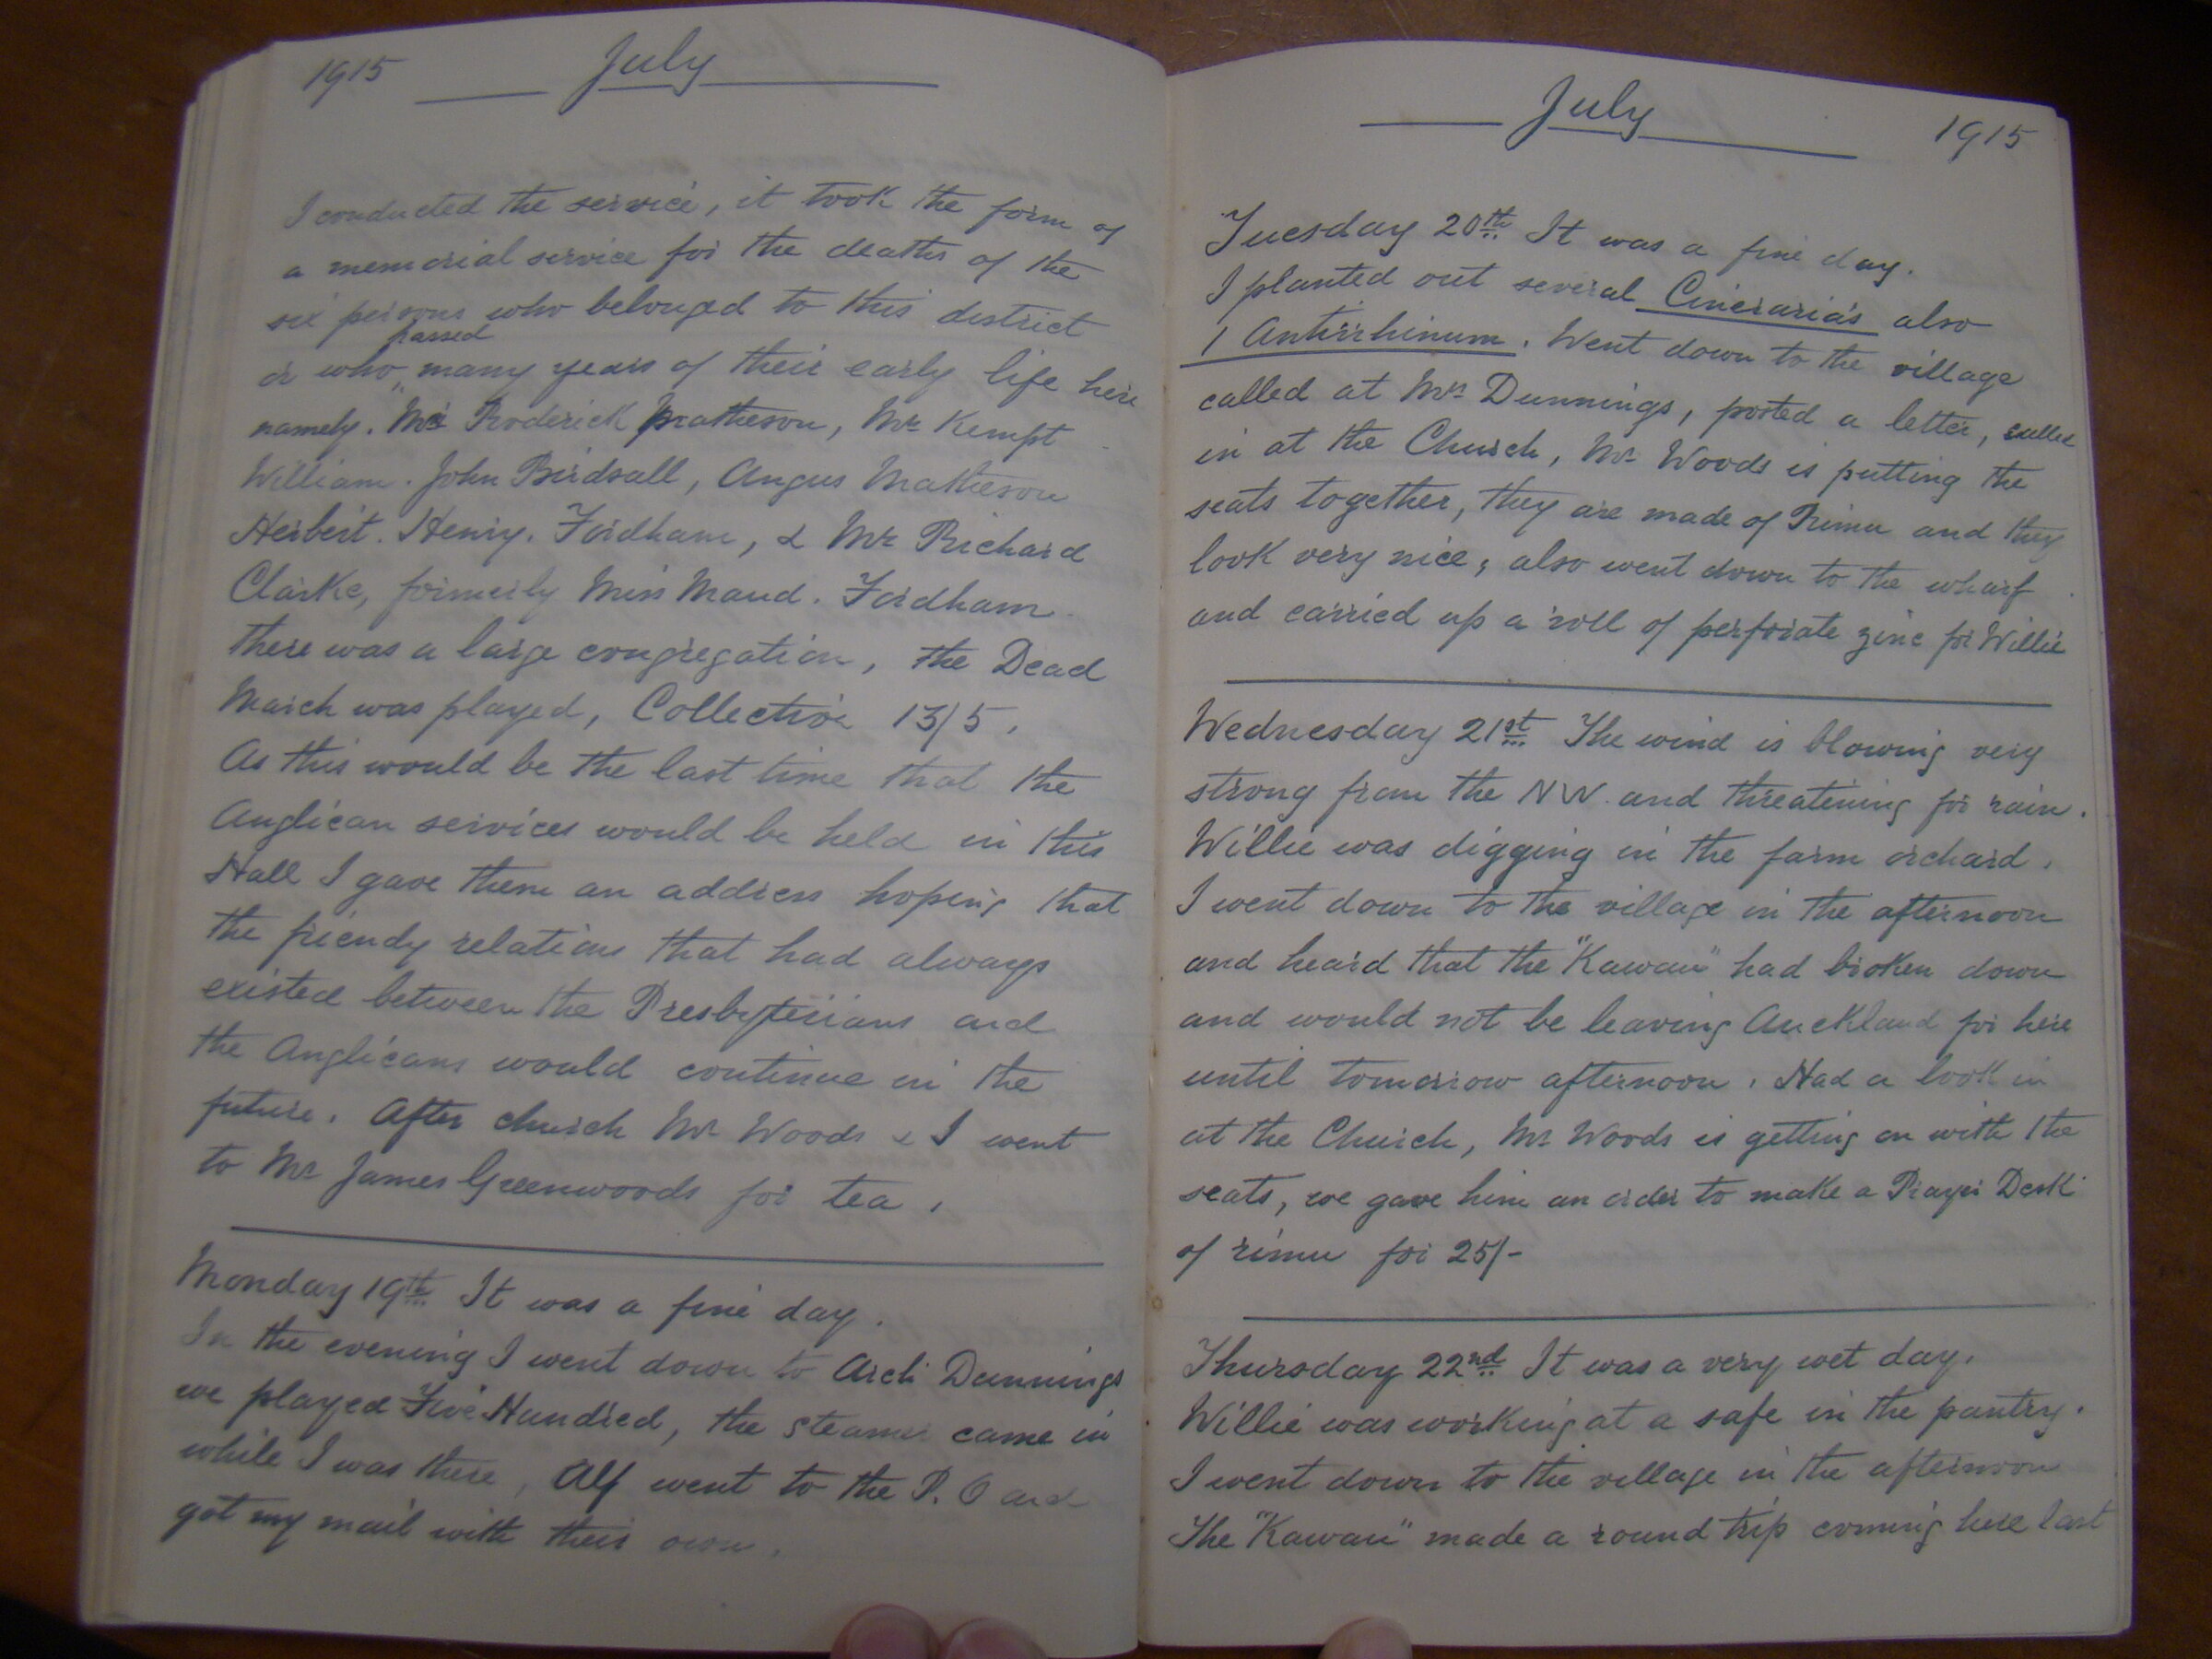 1915 July
I conducted the service, it took the form of
a memorial service for the deaths of the
six persons who belonged to this district
or who passed many years of their early life here
namely. Mrs Roderick Matheson, Mr Kempt
William. John Birdsall, Angus Matheson
Herbert. Henry. Fordham, & Mrs Richard
Clarke, formerly Miss Maud. Fordham
there was a large congregation, the Dead
March was played, Collection 13/5.
As this would be the last time that the
Anglican services would be held in this
Hall I gave them an address hoping that
the friendy relations that had always
existed between the Presbyterians and
the Anglicans would continue in the
future. After church Mr Woods & I went
to Mr James Greenwoods for tea.
Monday 19th It was a fine day.
In the evening I went down to Arch Dunnings
we played Five Hundred, the steamer came in
while I was there, Alf went to the P. O and
got my mail with their own.
July 1915
Tuesday 20th It was a fine day.
I planted out several Cineraria's also
1 Antirrhinum. Went down to the village
called at Mrs Dunnings, posted a letter, called
in at the Church, Mr Woods is putting the
seats together, they are made of Rimu and they
look very nice, also went down to the wharf
and carried up a roll of perforate zinc for Willie
Wednesday 21st The wind is blowing very
strong from the NW. and threatening for rain.
Willie was digging in the farm orchard.
I went down to the village in the afternoon
and heard that the "Kawau" had broken down
and would not be leaving Auckland for here
until tomorrow afternoon. Had a look in
at the Church, Mr Woods is getting on with the
seats, we gave him an order to make a Prayer Desk
of rimu for 25/-
Thursday 22nd It was a very wet day.
Willie was working at a safe in the pantry.
I went down to the village in the afternoon
The "Kawau" made a round trip coming here last